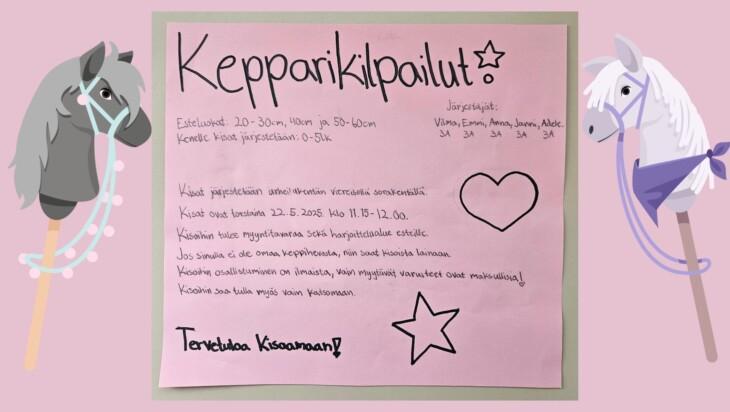 Kepparikilpailut!
Järjestäjät:
Vilma, Emmi, Anna, Janni, Adele.
3A 3A 3A 3A 3A
Esteluokat: 20-30cm, 40cm ja 50-60cm
Kenelle kisat järjestetään: 0-5lk
Kisat järjestetään urheilukentän viereisellä sorakentällä.
Kisat ovat torstaina 22.5.2025 klo 11.15-12.00.
Kisoihin tulee myyntitavaraa sekä harjoittelualue esteille.
Jos sinulla ei ole omaa keppihevosta, niin saat kisoista lainaan.
Kisoihin osallistuminen on ilmaista, vain myytävät varusteet ovat maksullisia!
Kisoihin saa tulla myös vain katsomaan.
Tervetuloa Kisaamaan!